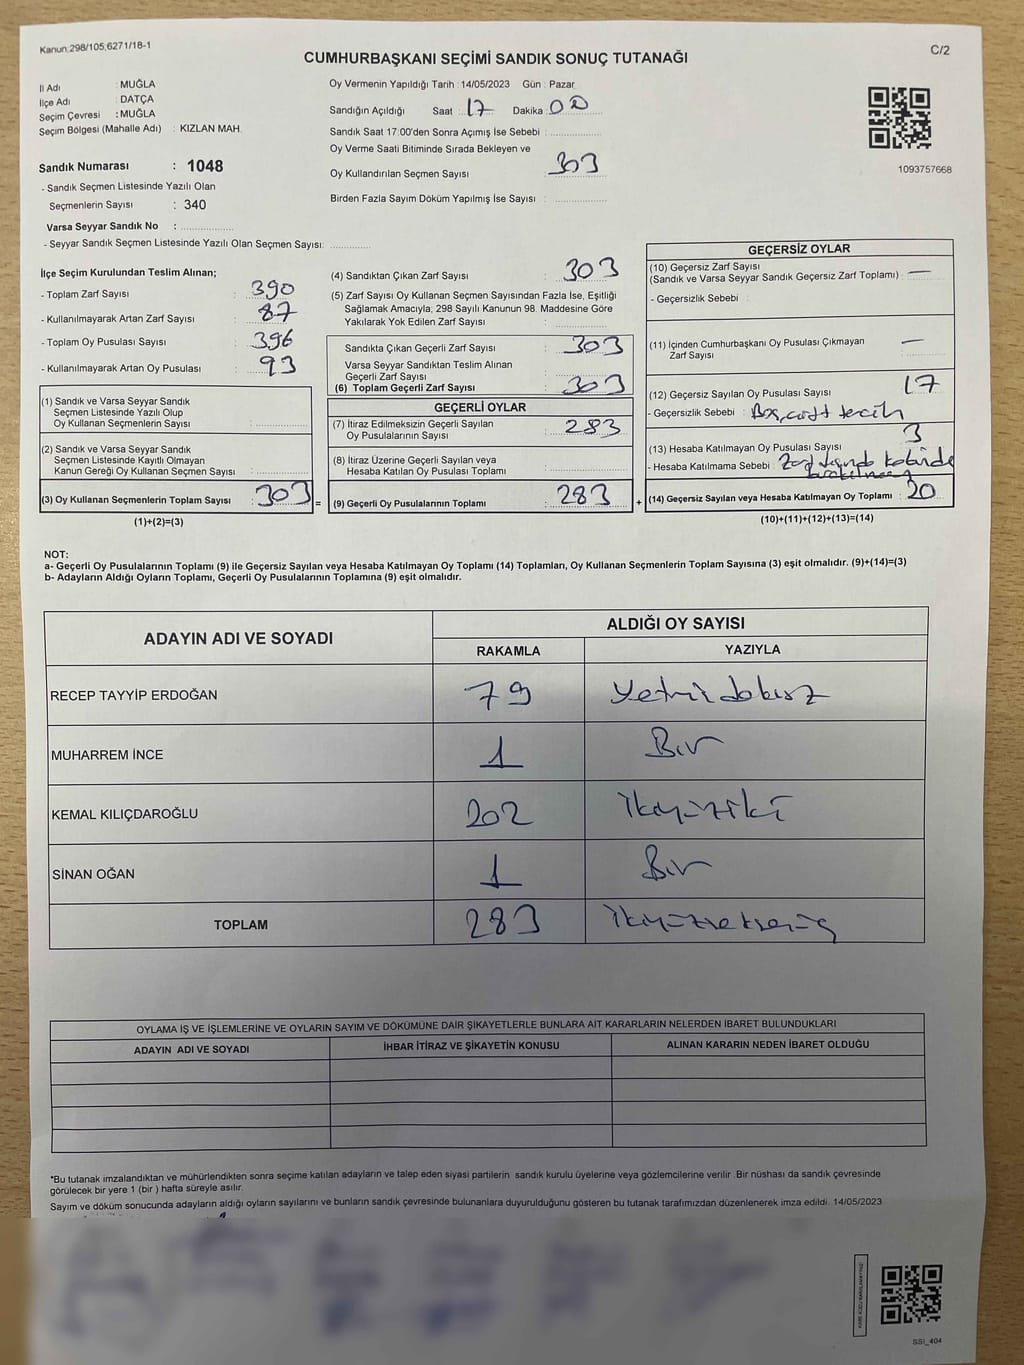 Kanun:298/105,6271/18-1
C/2
CUMHURBAŞKANI SEÇİMİ SANDIK SONUÇ TUTANAĞI
İl Adı : MUĞLA
İlçe Adı : DATÇA
Seçim Çevresi : MUĞLA
Seçim Bölgesi (Mahalle Adı) : KIZLAN MAH.
Sandık Numarası : 1048
- Sandık Seçmen Listesinde Yazılı Olan
Seçmenlerin Sayısı : 340
Varsa Seyyar Sandık No :
- Seyyar Sandık Seçmen Listesinde Yazılı Olan Seçmen Sayısı:
Oy Vermenin Yapıldığı Tarih : 14/05/2023 Gün : Pazar
Sandığın Açıldığı Saat : 17 Dakika : 00
Sandık Saat 17:00'den Sonra Açımış İse Sebebi :
Oy Verme Saati Bitiminde Sırada Bekleyen ve
Oy Kullandırılan Seçmen Sayısı : 303
Birden Fazla Sayım Döküm Yapılmış İse Sayısı :
1093757668
İlçe Seçim Kurulundan Teslim Alınan;
- Toplam Zarf Sayısı : 390
- Kullanılmayarak Artan Zarf Sayısı : 87
- Toplam Oy Pusulası Sayısı : 396
- Kullanılmayarak Artan Oy Pusulası : 93
(1) Sandık ve Varsa Seyyar Sandık
Seçmen Listesinde Yazılı Olup
Oy Kullanan Seçmenlerin Sayısı :
(2) Sandık ve Varsa Seyyar Sandık
Seçmen Listesinde Kayıtlı Olmayan
Kanun Gereği Oy Kullanan Seçmen Sayısı :
(3) Oy Kullanan Seçmenlerin Toplam Sayısı : 303 =
(1)+(2)=(3)
(4) Sandıktan Çıkan Zarf Sayısı : 303
(5) Zarf Sayısı Oy Kullanan Seçmen Sayısından Fazla İse, Eşitliği
Sağlamak Amacıyla; 298 Sayılı Kanunun 98. Maddesine Göre
Yakılarak Yok Edilen Zarf Sayısı :
Sandıkta Çıkan Geçerli Zarf Sayısı : 303
Varsa Seyyar Sandıktan Teslim Alınan
Geçerli Zarf Sayısı :
(6) Toplam Geçerli Zarf Sayısı : 303
GEÇERLİ OYLAR
(7) İtiraz Edilmeksizin Geçerli Sayılan
Oy Pusulalarının Sayısı : 283
(8) İtiraz Üzerine Geçerli Sayılan veya
Hesaba Katılan Oy Pusulası Toplamı :
(9) Geçerli Oy Pusulalarının Toplamı : 283 +
GEÇERSİZ OYLAR
(10) Geçersiz Zarf Sayısı
(Sandık ve Varsa Seyyar Sandık Geçersiz Zarf Toplamı) : —
- Geçersizlik Sebebi :
(11) İçinden Cumhurbaşkanı Oy Pusulası Çıkmayan
Zarf Sayısı : —
(12) Geçersiz Sayılan Oy Pusulası Sayısı : 17
- Geçersizlik Sebebi : Boş, çift tercih
(13) Hesaba Katılmayan Oy Pusulası Sayısı : 3
- Hesaba Katılmama Sebebi : Zarf
(14) Geçersiz Sayılan veya Hesaba Katılmayan Oy Toplamı : 20
(10)+(11)+(12)+(13)=(14)
NOT:
a- Geçerli Oy Pusulalarının Toplamı (9) ile Geçersiz Sayılan veya Hesaba Katılmayan Oy Toplamı (14) Toplamları, Oy Kullanan Seçmenlerin Toplam Sayısına (3) eşit olmalıdır. (9)+(14)=(3)
b- Adayların Aldığı Oyların Toplamı, Geçerli Oy Pusulalarının Toplamına (9) eşit olmalıdır.
ADAYIN ADI VE SOYADI
ALDIĞI OY SAYISI
RAKAMLA YAZIYLA
RECEP TAYYİP ERDOĞAN 79 Yetmişdokuz
MUHARREM İNCE 1 Bir
KEMAL KILIÇDAROĞLU 202 İkiyüziki
SİNAN OĞAN 1 Bir
TOPLAM 283 İkiyüzseksenüç
OYLAMA İŞ VE İŞLEMLERİNE VE OYLARIN SAYIM VE DÖKÜMÜNE DAİR ŞİKAYETLERLE BUNLARA AİT KARARLARIN NELERDEN İBARET BULUNDUKLARI
ADAYIN ADI VE SOYADI İHBAR İTİRAZ VE ŞİKAYETİN KONUSU ALINAN KARARIN NEDEN İBARET OLDUĞU
*Bu tutanak imzalandıktan ve mühürlendikten sonra seçime katılan adayların ve talep eden siyasi partilerin sandık kurulu üyelerine veya gözlemcilerine verilir. Bir nüshası da sandık çevresinde
görülecek bir yere 1 (bir ) hafta süreyle asılır.
Sayım ve döküm sonucunda adayların aldığı oyların sayılarını ve bunların sandık çevresinde bulunanlara duyurulduğunu gösteren bu tutanak tarafımızdan düzenlenerek imza edildi. 14/05/2023
SSI_404